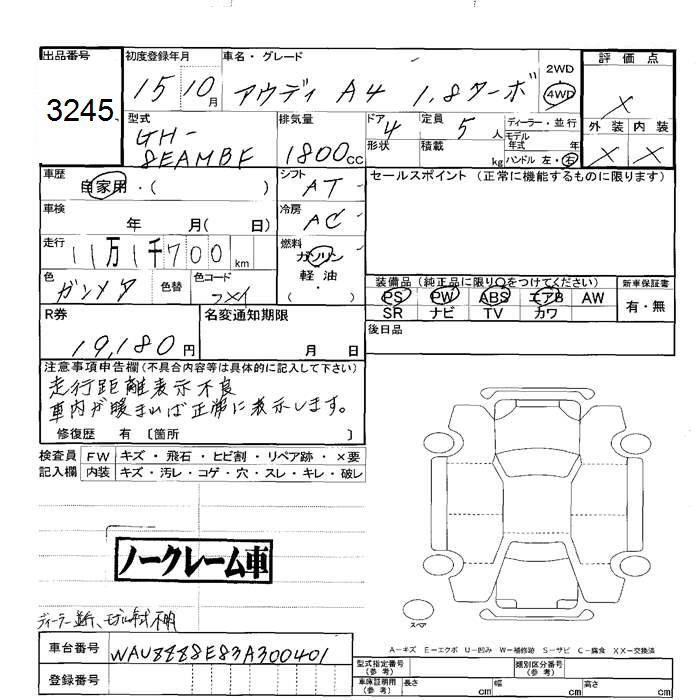 出品番号 初度登録年月 車名・グレード 2WD 評価点
3245 15 10月 アウディ A4 1.8ターボ 4WD ×
型式 排気量 ドア 定員 ディーラー・並行 外装 内装
GH- 4 5人 モデル年式 年 × ×
8EAMBF 1800cc 形状 積載 kg ハンドル 左・右
車歴 シフト セールスポイント (正常に機能するものに限ります)
自家用・( ) AT
車検 冷房
年 月( 日) AC
走行 燃料
11万1千700km ガソリン
色 色替 色コード 軽油 装備品 (純正品に限り○をつけてください) 新車保証書
ガンメタ ・( ) PS PW ABS エアB AW 有・無
SR ナビ TV カワ
R券 名変通知期限 後日品
19,180円 月 日
注意事項申告欄(不具合内容等は具体的に記入して下さい)
走行距離表示不良
車内が暖まれば正常に表示します。
修復歴 有 〔箇所 〕
検査員 FW キズ・飛石・ヒビ割・リペア跡・×要
記入欄 内装 キズ・汚レ・コゲ・穴・スレ・キレ・破レ
ノークレーム車
ディーラー並行、モデル年式不明
スペア
A－キズ E－エクボ U－凹み W－補修跡 S－サビ C－腐食 XX－交換済
車台番号 WAUZZZ8E83A300401
登録番号
型式指定番号(参考) 類別区分番号(参考)
車庫証明用(参考) 長さ cm 幅 cm 高さ cm